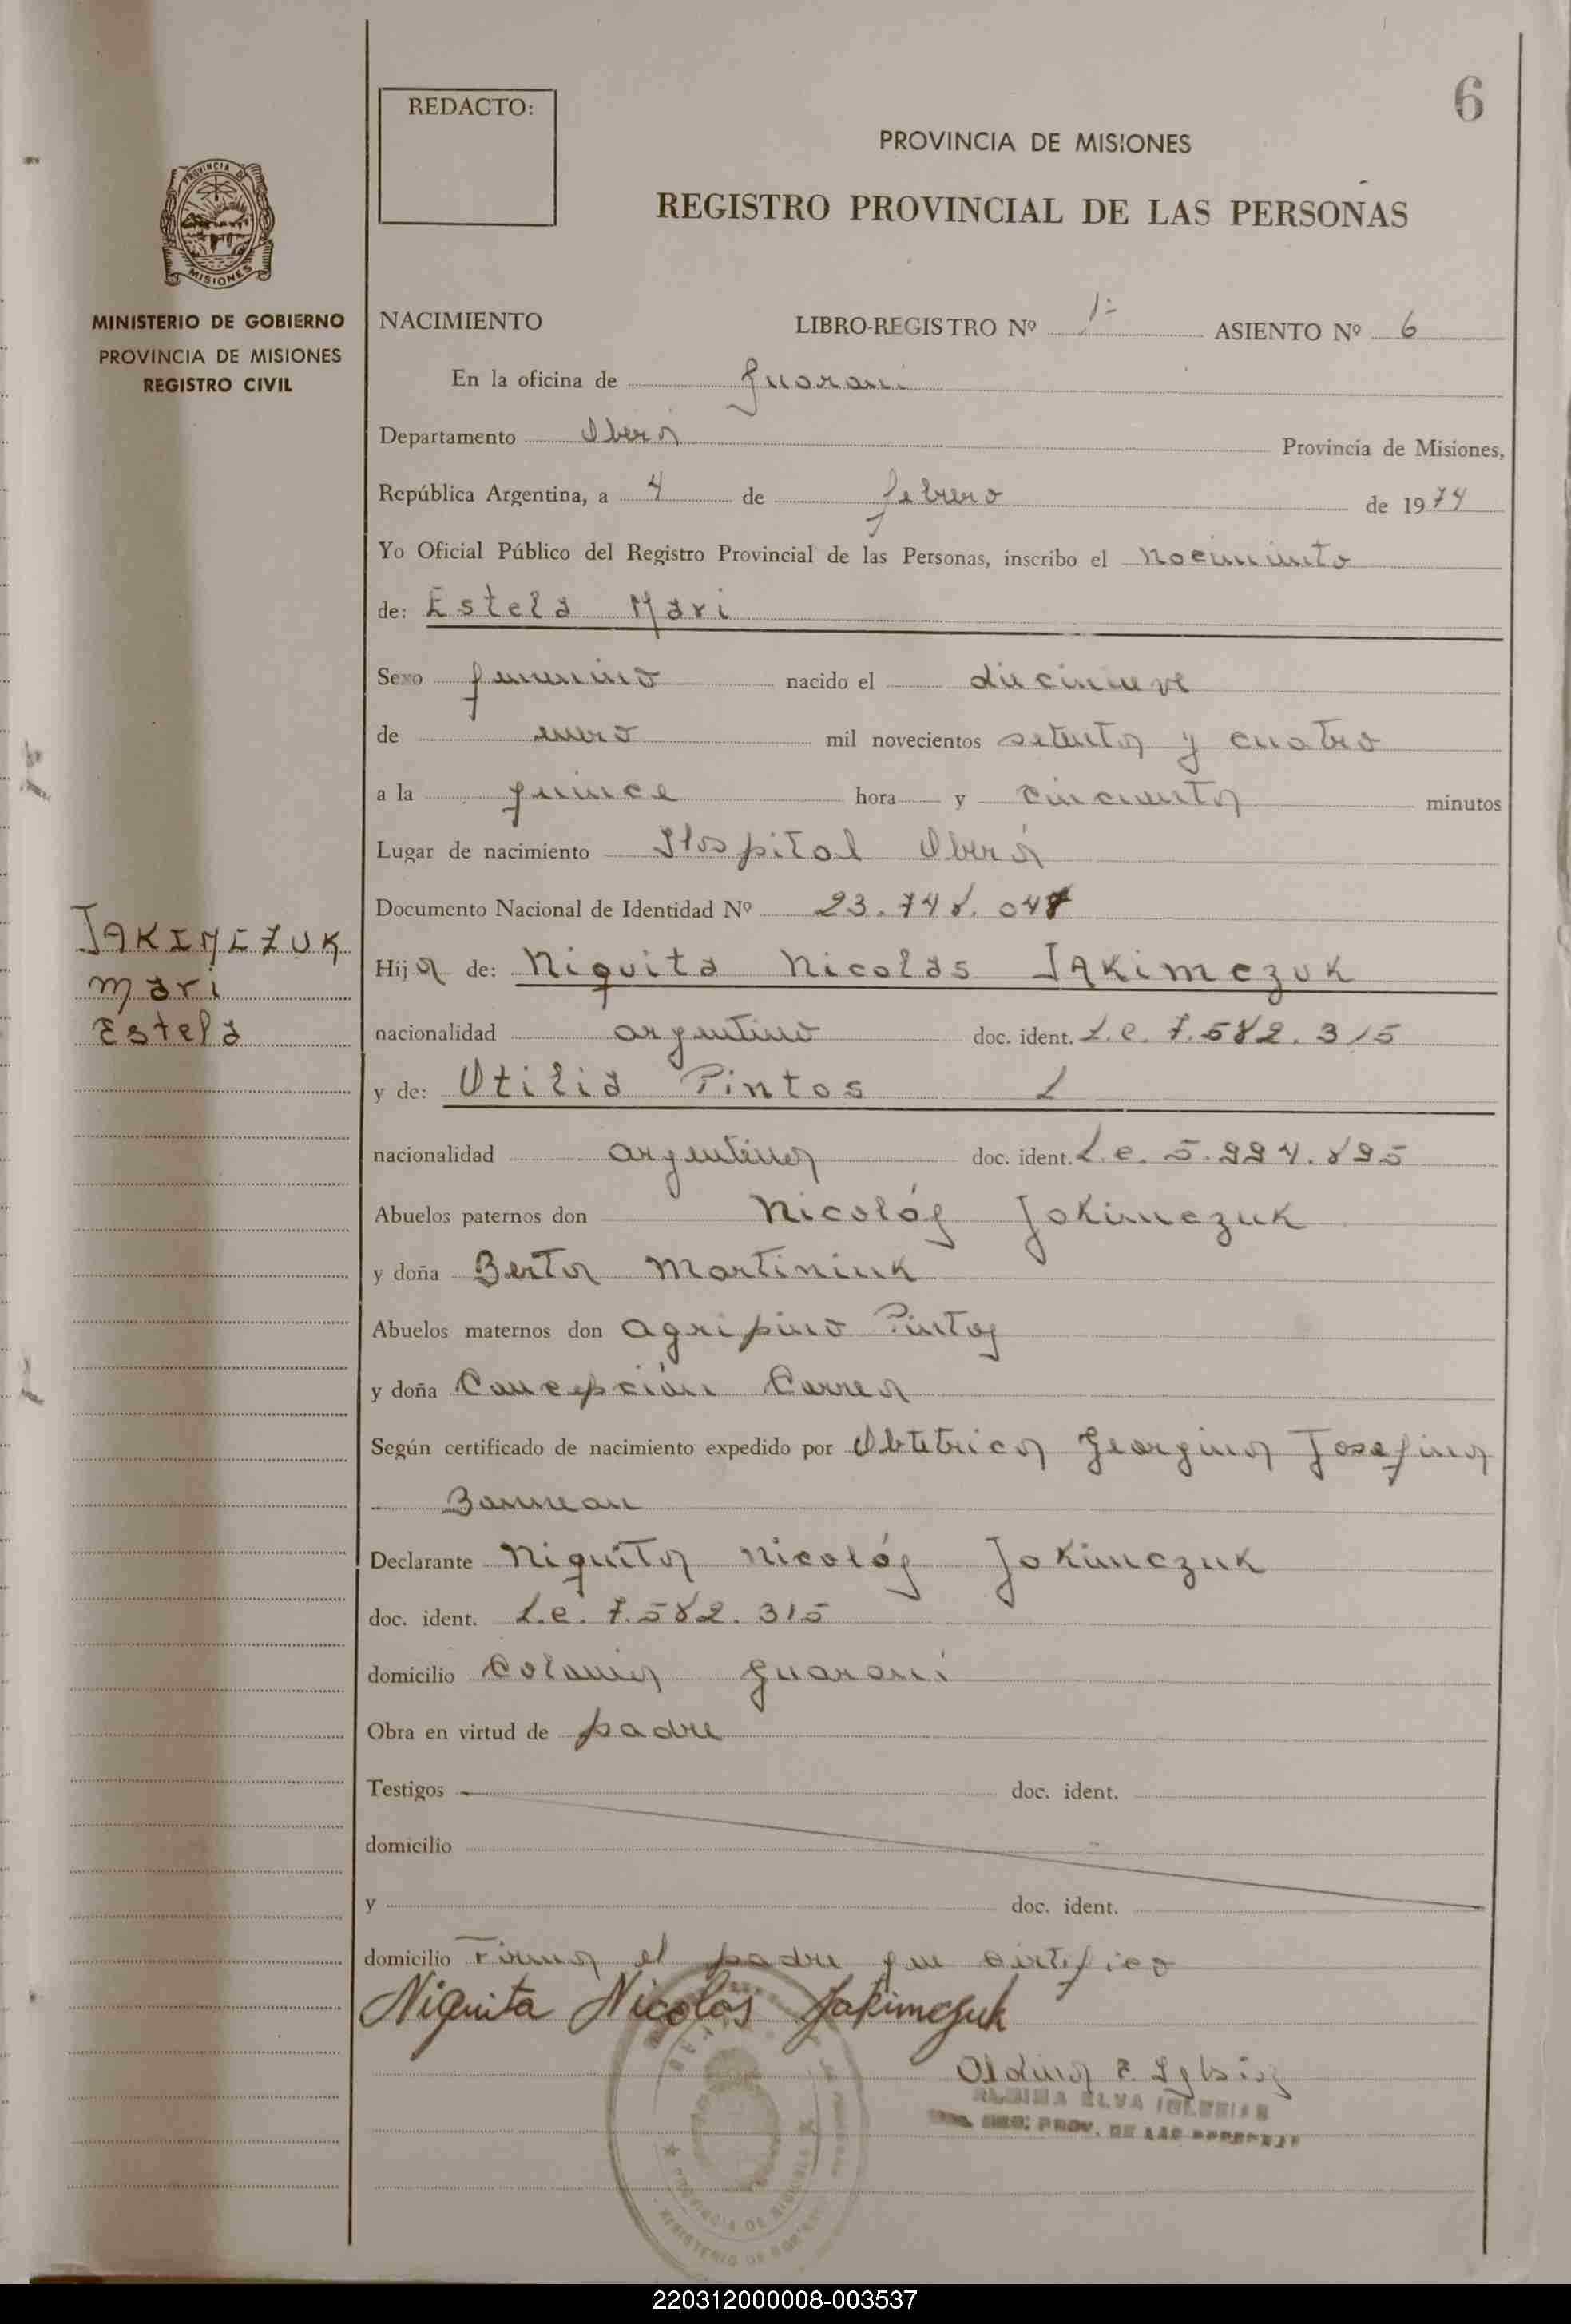 6
REDACTO:
PROVINCIA DE MISIONES
REGISTRO PROVINCIAL DE LAS PERSONAS
PROVINCIA DE
MISIONES
MINISTERIO DE GOBIERNO
PROVINCIA DE MISIONES
REGISTRO CIVIL
NACIMIENTO LIBRO-REGISTRO Nº 1º ASIENTO Nº 6
En la oficina de Guarani
Departamento Oberá Provincia de Misiones,
República Argentina, a 4 de febrero de 1974
Yo Oficial Público del Registro Provincial de las Personas, inscribo el nacimiento
de: Estela Mari
Sexo femenino nacido el diecinueve
de enero mil novecientos setenta y cuatro
a la quince hora y cincuenta minutos
Lugar de nacimiento Hospital Oberá
Documento Nacional de Identidad Nº 23.748.047
JAKIMCZUK
Mari
Estela
Hija de: Niquita Nicolas JAKimczuk
nacionalidad argentino doc. ident. L.e. 7.582.315
y de: Otilia Pintos
nacionalidad argentina doc. ident. L.e. 5.994.895
Abuelos paternos don Nicolás Jakimczuk
y doña Berta Martiniuk
Abuelos maternos don Agripino Pintos
y doña Concepción Correa
Según certificado de nacimiento expedido por Obtetrica Georgina Josefina
Declarante Niquita Nicolás Jakimczuk
doc. ident. L.e. 7.582.315
domicilio Colonia Guaraní
Obra en virtud de padre
Testigos doc. ident.
domicilio
y doc. ident.
domicilio Firma el padre que certifico
Niquita Nicolás Jakimczuk
PROVINCIA DE MISIONES
220312000008-003537